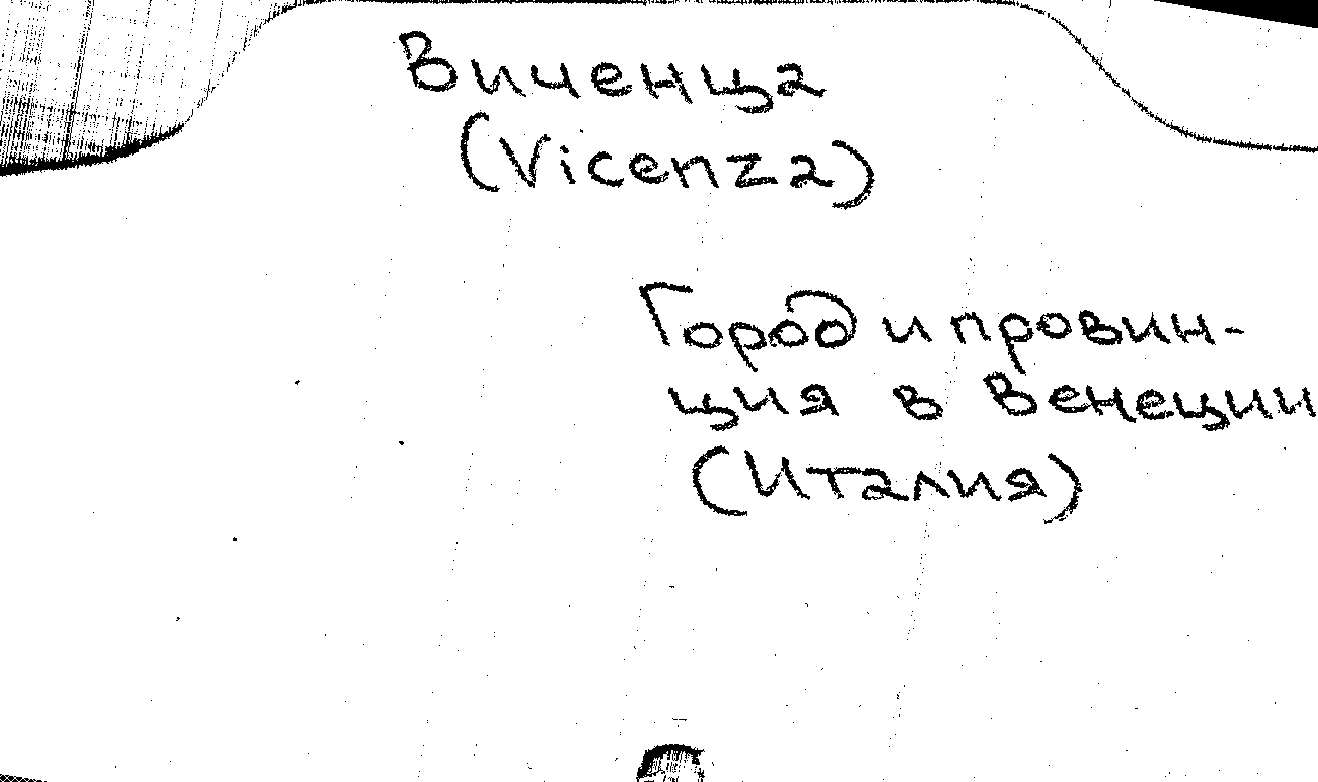 Виченца
(Vicenza)
Город и провин-
ция в Венеции
(Италия)